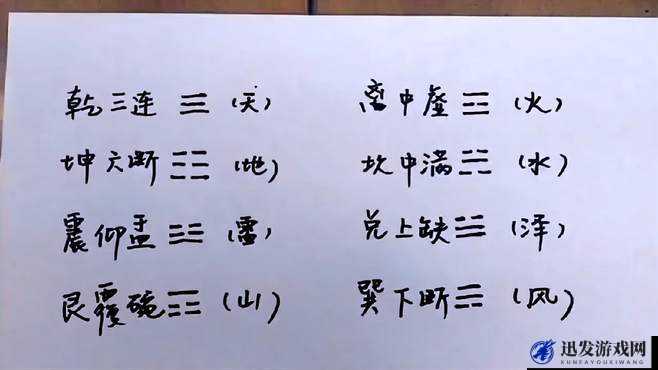 乾三连 ☰ (天)
离中虚 ☲ (火)
坤六断 ☷ (地)
坎中满 ☵ (水)
震仰盂 ☳ (雷)
兑上缺 ☱ (泽)
艮覆碗 ☶ (山)
巽下断 ☴ (风)
迅发游戏网
XUNFAYOUXIWANG